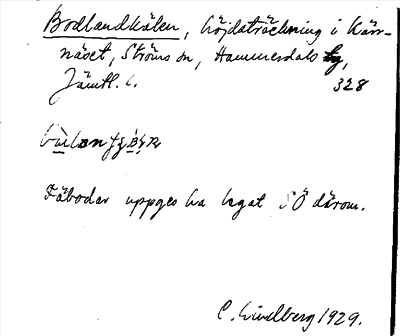 Bodlandkälen, höjdsträckning i Kärr-
näset, Ströms sn, Hammerdals tg,
Jämtl. l. 328
Fäbodar uppges ha legat SÖ därom.
C. Lindberg 1929.